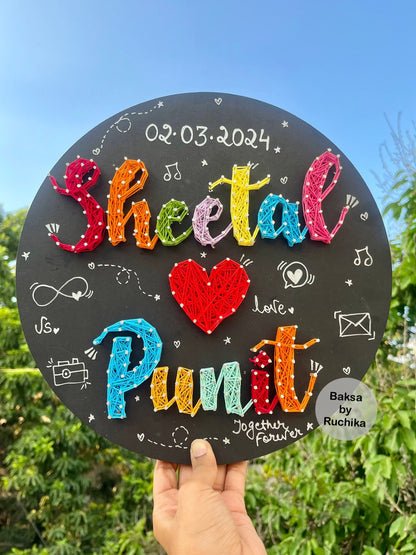 02·03·2024
Sheetal
love
Us
Punit
Together
Forever
Baksa
by
Ruchika